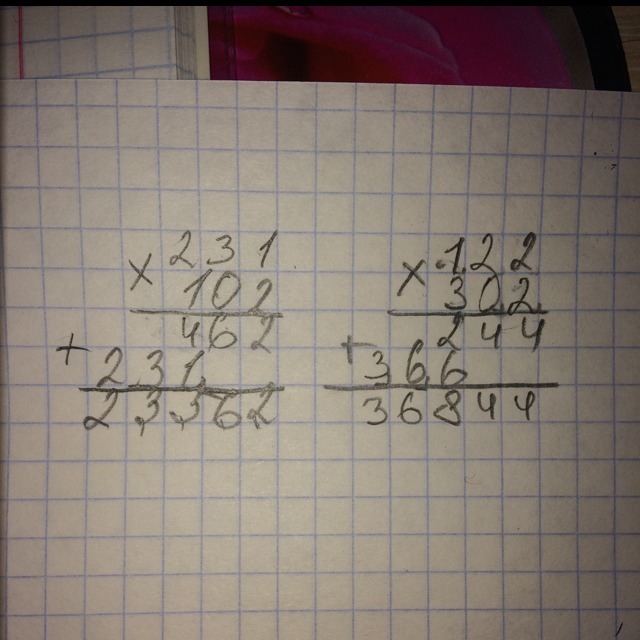 231
× 102
462
+ 231
23362
122
× 302
244
+ 366
36844